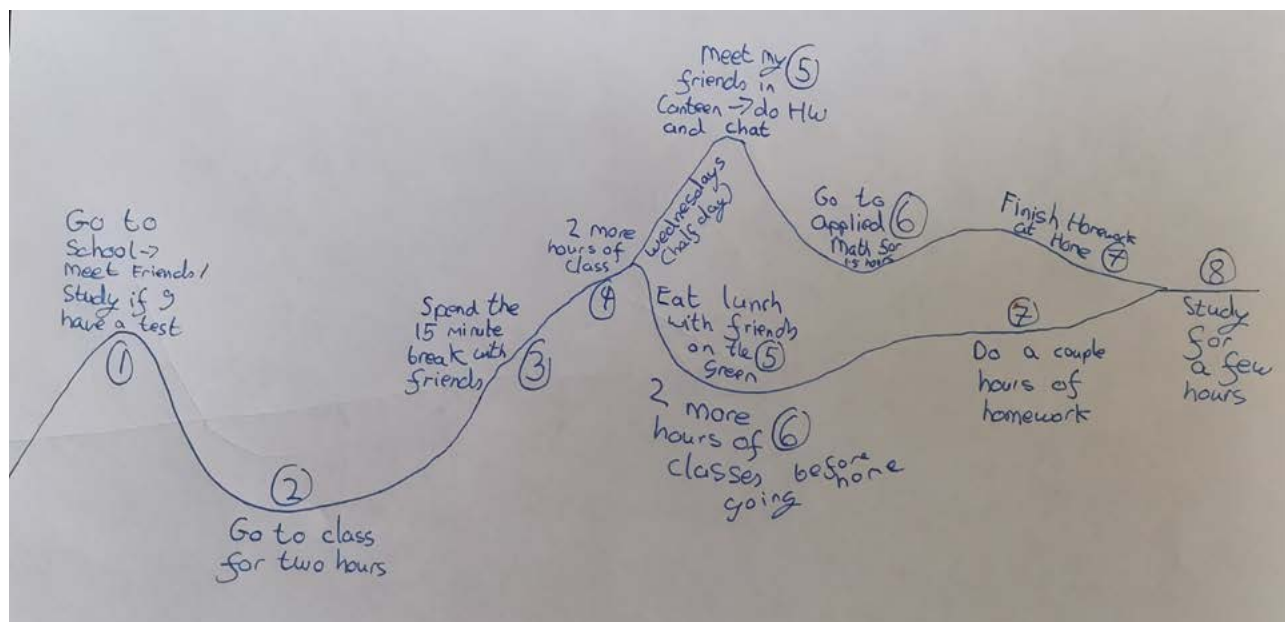 Go to
School->
Meet Friends/
Study if I
have a test
①
②
Go to class
for two hours
Spend the
15 minute
break with
friends
③
2 more
hours of
class
④
Wednesdays
(half day)
Meet my ⑤
friends in
Canteen -> do HW
and chat
Go to
Applied ⑥
Math for
1.5 hours
Finish Homework
at
Home ⑦
Eat lunch
with friends
on the ⑤
Green
2 more
hours of ⑥
classes before
home
going
⑦
Do a couple
hours of
homework
⑧
Study
for
a few
hours